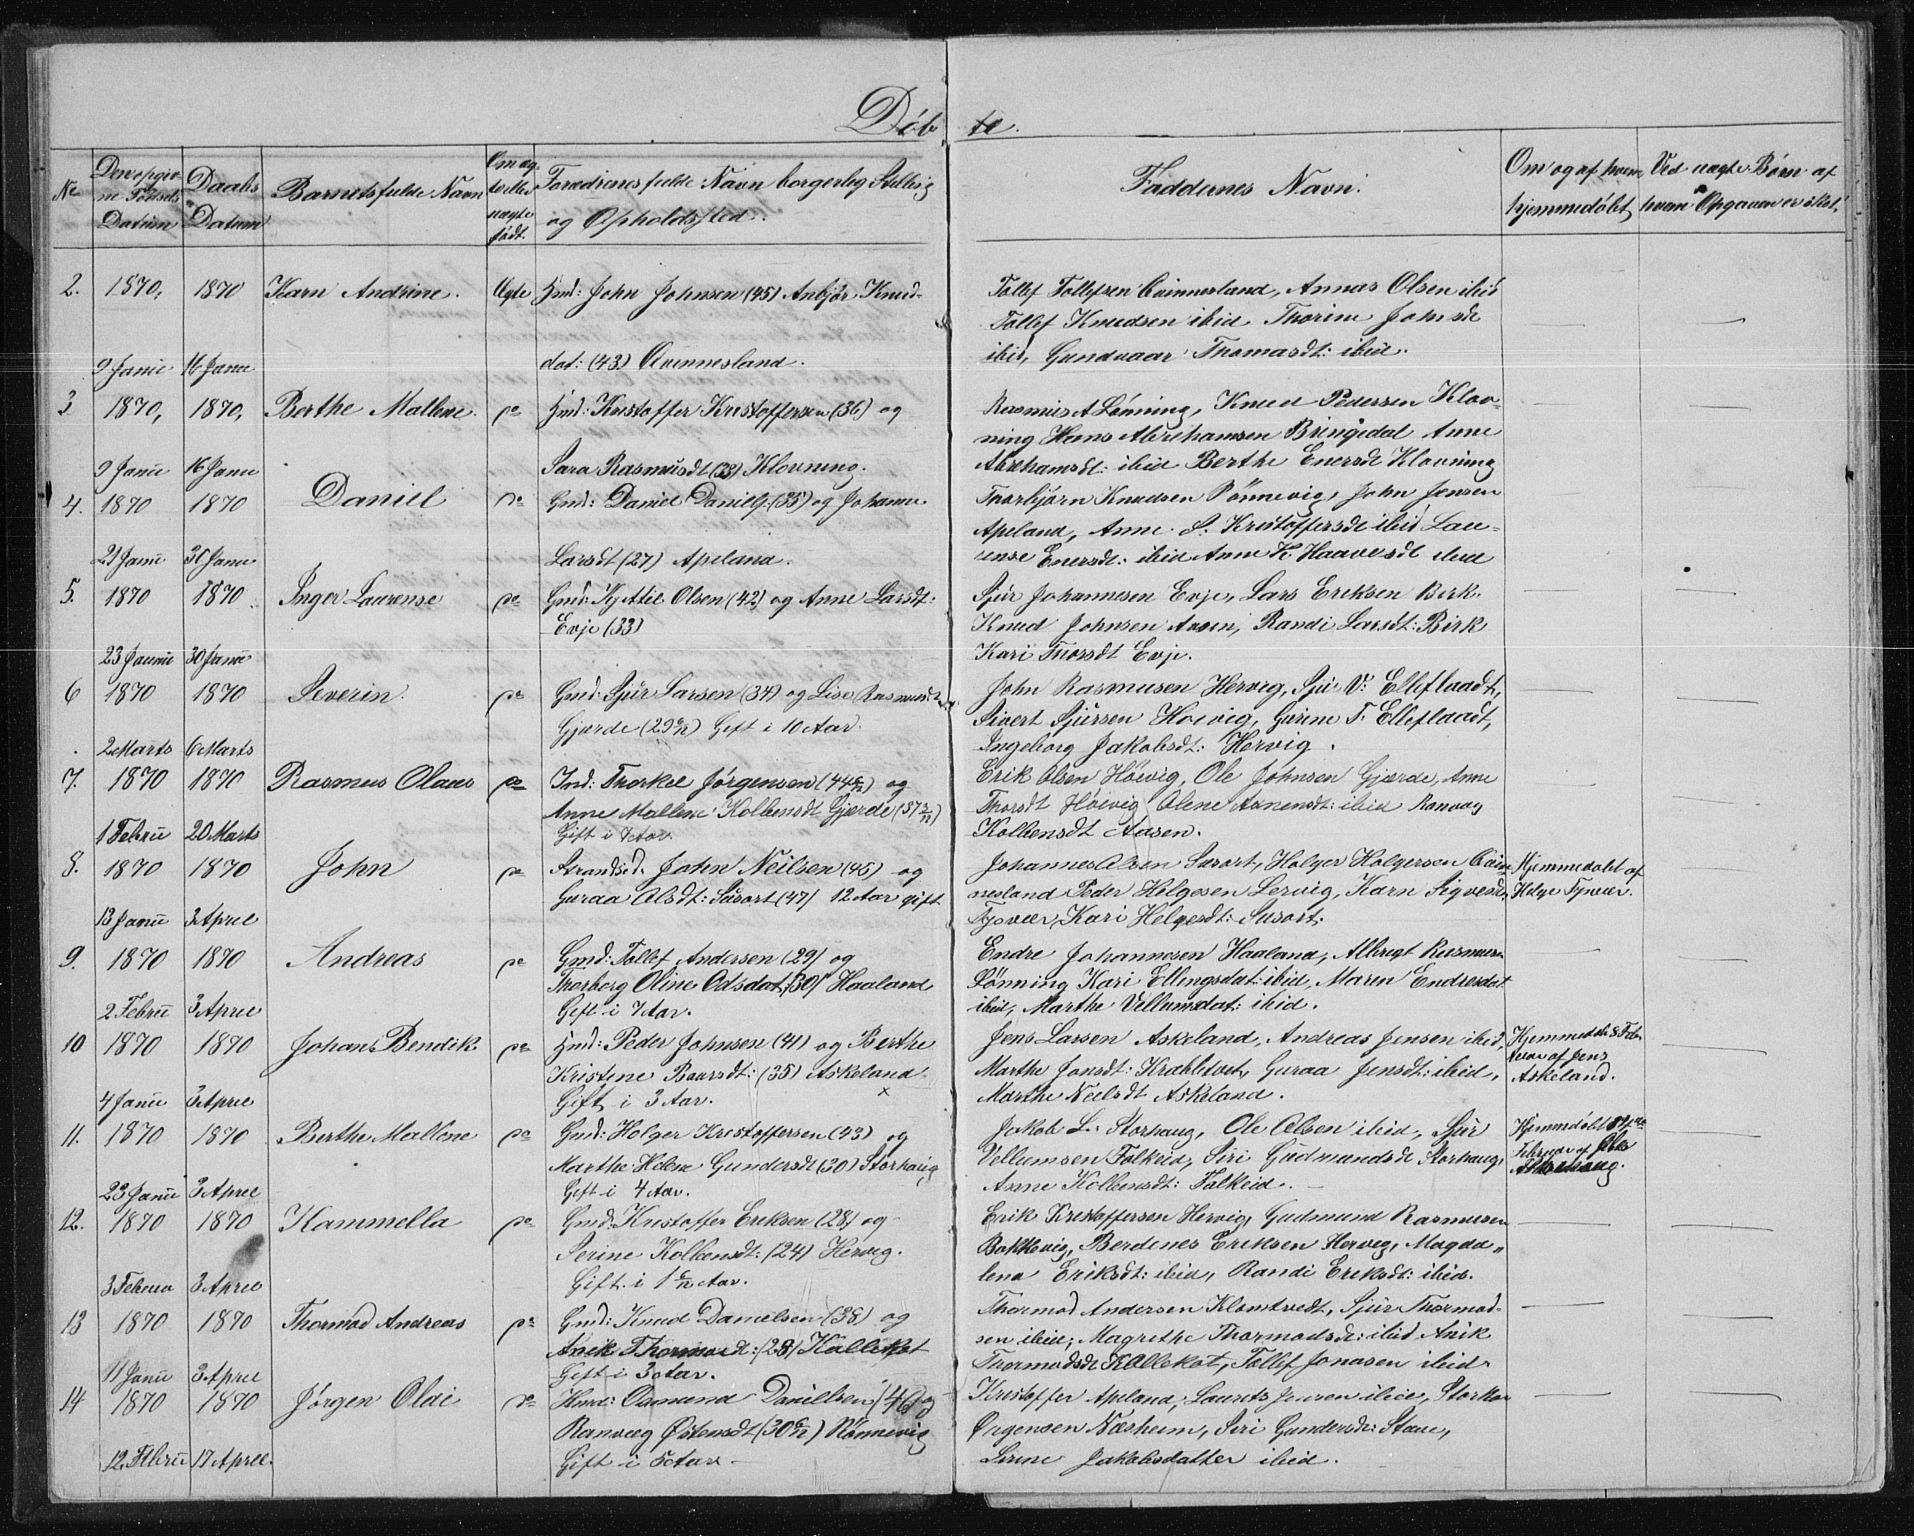 Døb te.
No
Den opgivne Fødsels Datum
Daabs Datum
Barnets fulde Navn
Om ægte eller uægte født.
Forældrenes fulde Navn borgerlig Stilling
og Opholdsted.
Faddernes Navn.
Om og af hvem
hjemmedøbt,
Ved uægte Børn af
hvem Opgaven er sket,
2. 1870, 1870 Karn Andrine. Ægte Hmd: John Johnsen (45) Anbjør Knud-
9 Janu 16 Janu dat: (43) Qvinnesland.
Tollef Tollefsen Qvinnesland, Annas Olsen ibid
Tollef Knudsen ibid Thorine Johnsdt
ibid, Gundvaar Thomasdt: ibid.
3 1870, 1870, Berthe Mallene. do Hmd: Kristoffer Kristoffersen (36) og
9 Janu 16 Janu Sara Rasmusdt (38) Klovning.
Rasmus A Lønning, Knud Pedersen Klov-
ning Hans Abrahamsen Bringedal Anne
Abrahamsdt: ibid Berthe Enersdt Klovning
4. 1870 1870 Daniel do Gmd: Daniel Daniels: (35) og Johanne
21 Janu 30 Janu Larsdt (27) Apeland.
Thorbjørn Knudsen Rønnevig, John Jensen
Apeland, Anne S. Kristoffersdt ibid Lau-
rense Enersdt: ibid Anne K. Haavesdt ibid
5. 1870 1870 Inger Laurense do Gmd: Kjettil Olsen (42) og Anne Larsdt:
Evje (33)
23 Januu 30 Janu
Sjur Johannesen Evje, Lars Eriksen Birk.
Knud Johnsen Aasen, Randi Larsdt: Birk
Kari Thorsdt Evje.
6 1870 1870 Severin. do Gmd: Sjur Larsen (34) og Lise Rasmusdt
Gjerde (29 6/12) Gift i 10 Aar.
2 Marts 6 Marts
John Rasmusen Hervig, Sjur V: Elleflaadt,
Sivert Sjursen Høivig, Gurine T. Elleflaadt,
Ingeborg Jakobsdt: Hervig.
7. 1870 1870 Rasmus Olaus do Ind: Thorkel Jørgensen (44 6/12) og
Anne Mallene Kolbensdt Gjerde (37 3/12)
1 Febru 20 Marts Gift i 7 Aar.
Erik Olsen Høivig, Ole Johnsen Gjerde, Anne
Thorsdt Høivig Olene Arnensdt: ibid Ranvag
Kolbensdt Aasen.
8. 1870 1870 John do Strandsid. John Neilsen (45) og
Guraa Olsdt: Susort (47) 12 Aar gift
13 Janu 3 April
Johannes Olsen Susort, Holger Holgersen Qvin-
nesland Peder Helgesen Lervig, Karn Sigvesdt,
Tysvær, Kari Helgesdt: Susort.
Hjemmedøbt af
Helge Tysvær.
9. 1870 1870 Andreas do Gmd: Tollef Andersen (29) og
Thorborg Oline Odsdat: (30) Haaland
2 Febru 3 April Gift i 7 Aar.
Endre Johannesen Haaland, Albrigt Rasmusen
Lønning Kari Ellingsdat: ibid, Maren Endresdat
ibid, Marthe Vellumsdat: ibid.
10 1870 1870 Johan Bendik do Hmd: Peder Johnsen (41) og Berthe
Kristine Baarsdt: (35) Askeland
4 Janu 3 April Gift i 3 Aar. x
Jens Larsen Askeland, Andreas Jensen ibid,
Marthe Jonsdt: Krabletvet, Guraa Jensdt: ibid,
Marthe Neilsdt Askeland.
Hjemmedøb 8 Feb-
ruar af Jens
Askeland.
11. 1870 1870 Berthe Mallene do Gmd: Holger Kristoffersen (43) og
Marthe Helene Gundersdt (30) Storhaug,
23 Janu 3 April Gift i 4 Aar.
Jakob L. Storhaug, Ole Olsen ibid, Sjur
Vellumsen Falkeid, Siri Gudmundsdt Storhaug,
Anne Kolbensdt: Falkeid.
Hjemmedøbt
Februar af Ole
12. 1870 1870 Kammella do Gmd: Kristoffer Eriksen (28) og
Serine Kolbensdt: (24) Hervig.
3 Februa 3 April Gift i 1 6/12 Aar.
Erik Kristoffersen Hervig, Gudmund Rasmusen
Bokkevig, Berdines Eriksen Hervig, Magda„
lena Eriksdt: ibid, Randi Eriksdt: ibid.
13 1870 1870 Thormod Andreas do Gmd: Knud Danielsen (38) og
Anik Thormodt: (28) Kallekot
11 Janu 3 April Gift i 3 Aar.
Thormod Andersen Klomtvedt, Sjur Thormod-
sen ibid; Magrethe Thormodsdt: ibid Anik
Thormodsdt Kallekot, Tollef Jonasen ibid
14 1870 1870 Jørgen Oldi do Hmd: Osmund Danielsen (46) og
Ranvæg Østensdt (30 6/12) Rønnevig
12. Febru 17 April. Gift i 5 Aar
Kristoffer Apeland, Laurets Jensen ibid, Storkor
Ørgensen Næsheim, Siri Gundersdt: Staue,
Serine Jakobsdatter ibid.